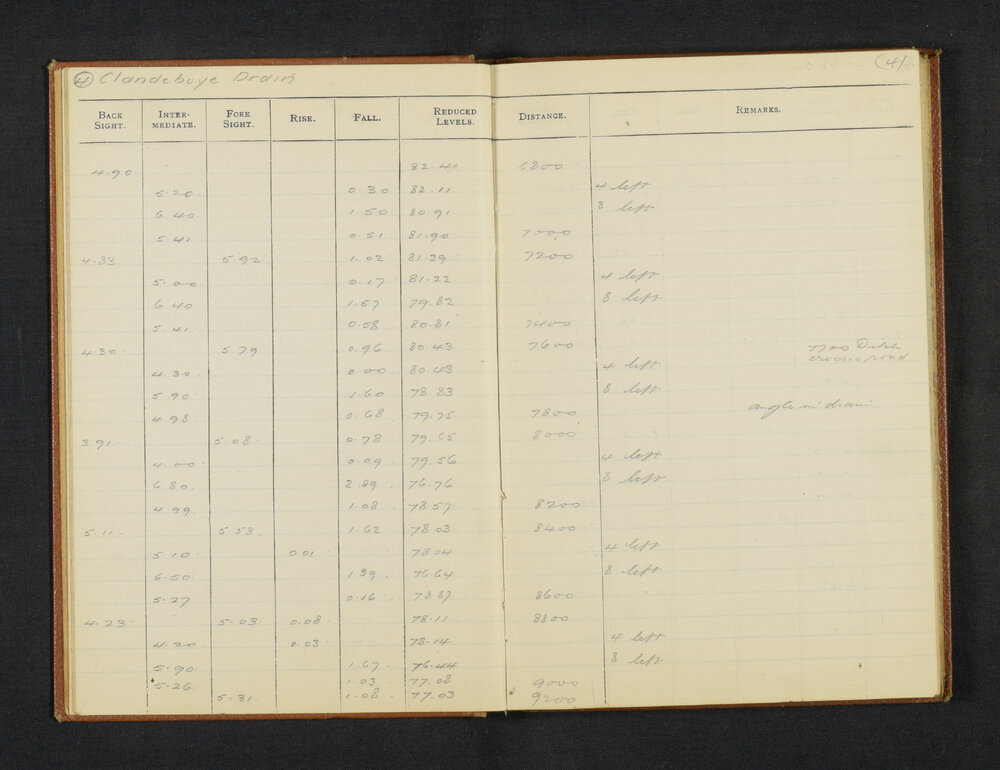 4 Clandeboye Drain (4)
BACK SIGHT. INTER-MEDIATE. FORE SIGHT. RISE. FALL. REDUCED LEVELS. DISTANCE. REMARKS.
4.90 82.41 6800
5.20 0.30 82.11 4 left
6.40 1.50 80.91 8 left
5.41 0.51 81.90 7000
4.83 5.92 1.02 81.39 7200
5.00 0.17 81.22 4 left
6.40 1.57 79.82 8 left
5.41 0.58 80.81 7400
4.30 5.79 0.96 80.43 7600 7700 Ditch
crosses road
4.30 0.00 80.43 4 left
5.90 1.60 78.83 8 left
4.98 0.68 79.75 7800 angle in drain.
3.91 5.08 0.78 79.65 8000
4.00 0.09 79.56 4 left
6.80 2.89 76.76 8 left
4.99 1.08 78.57 8200
5.11 5.53 1.62 78.03 8400
5.10 0.01 78.04 4 left
6.50 1.39 76.64 8 left
5.27 0.16 78.87 8600
4.23 5.03 0.08 78.11 8800
4.20 0.03 78.14 4 left
5.90 1.67 76.44 8 left
5.26 1.03 77.08 9000
5.31 1.08 77.03 9200